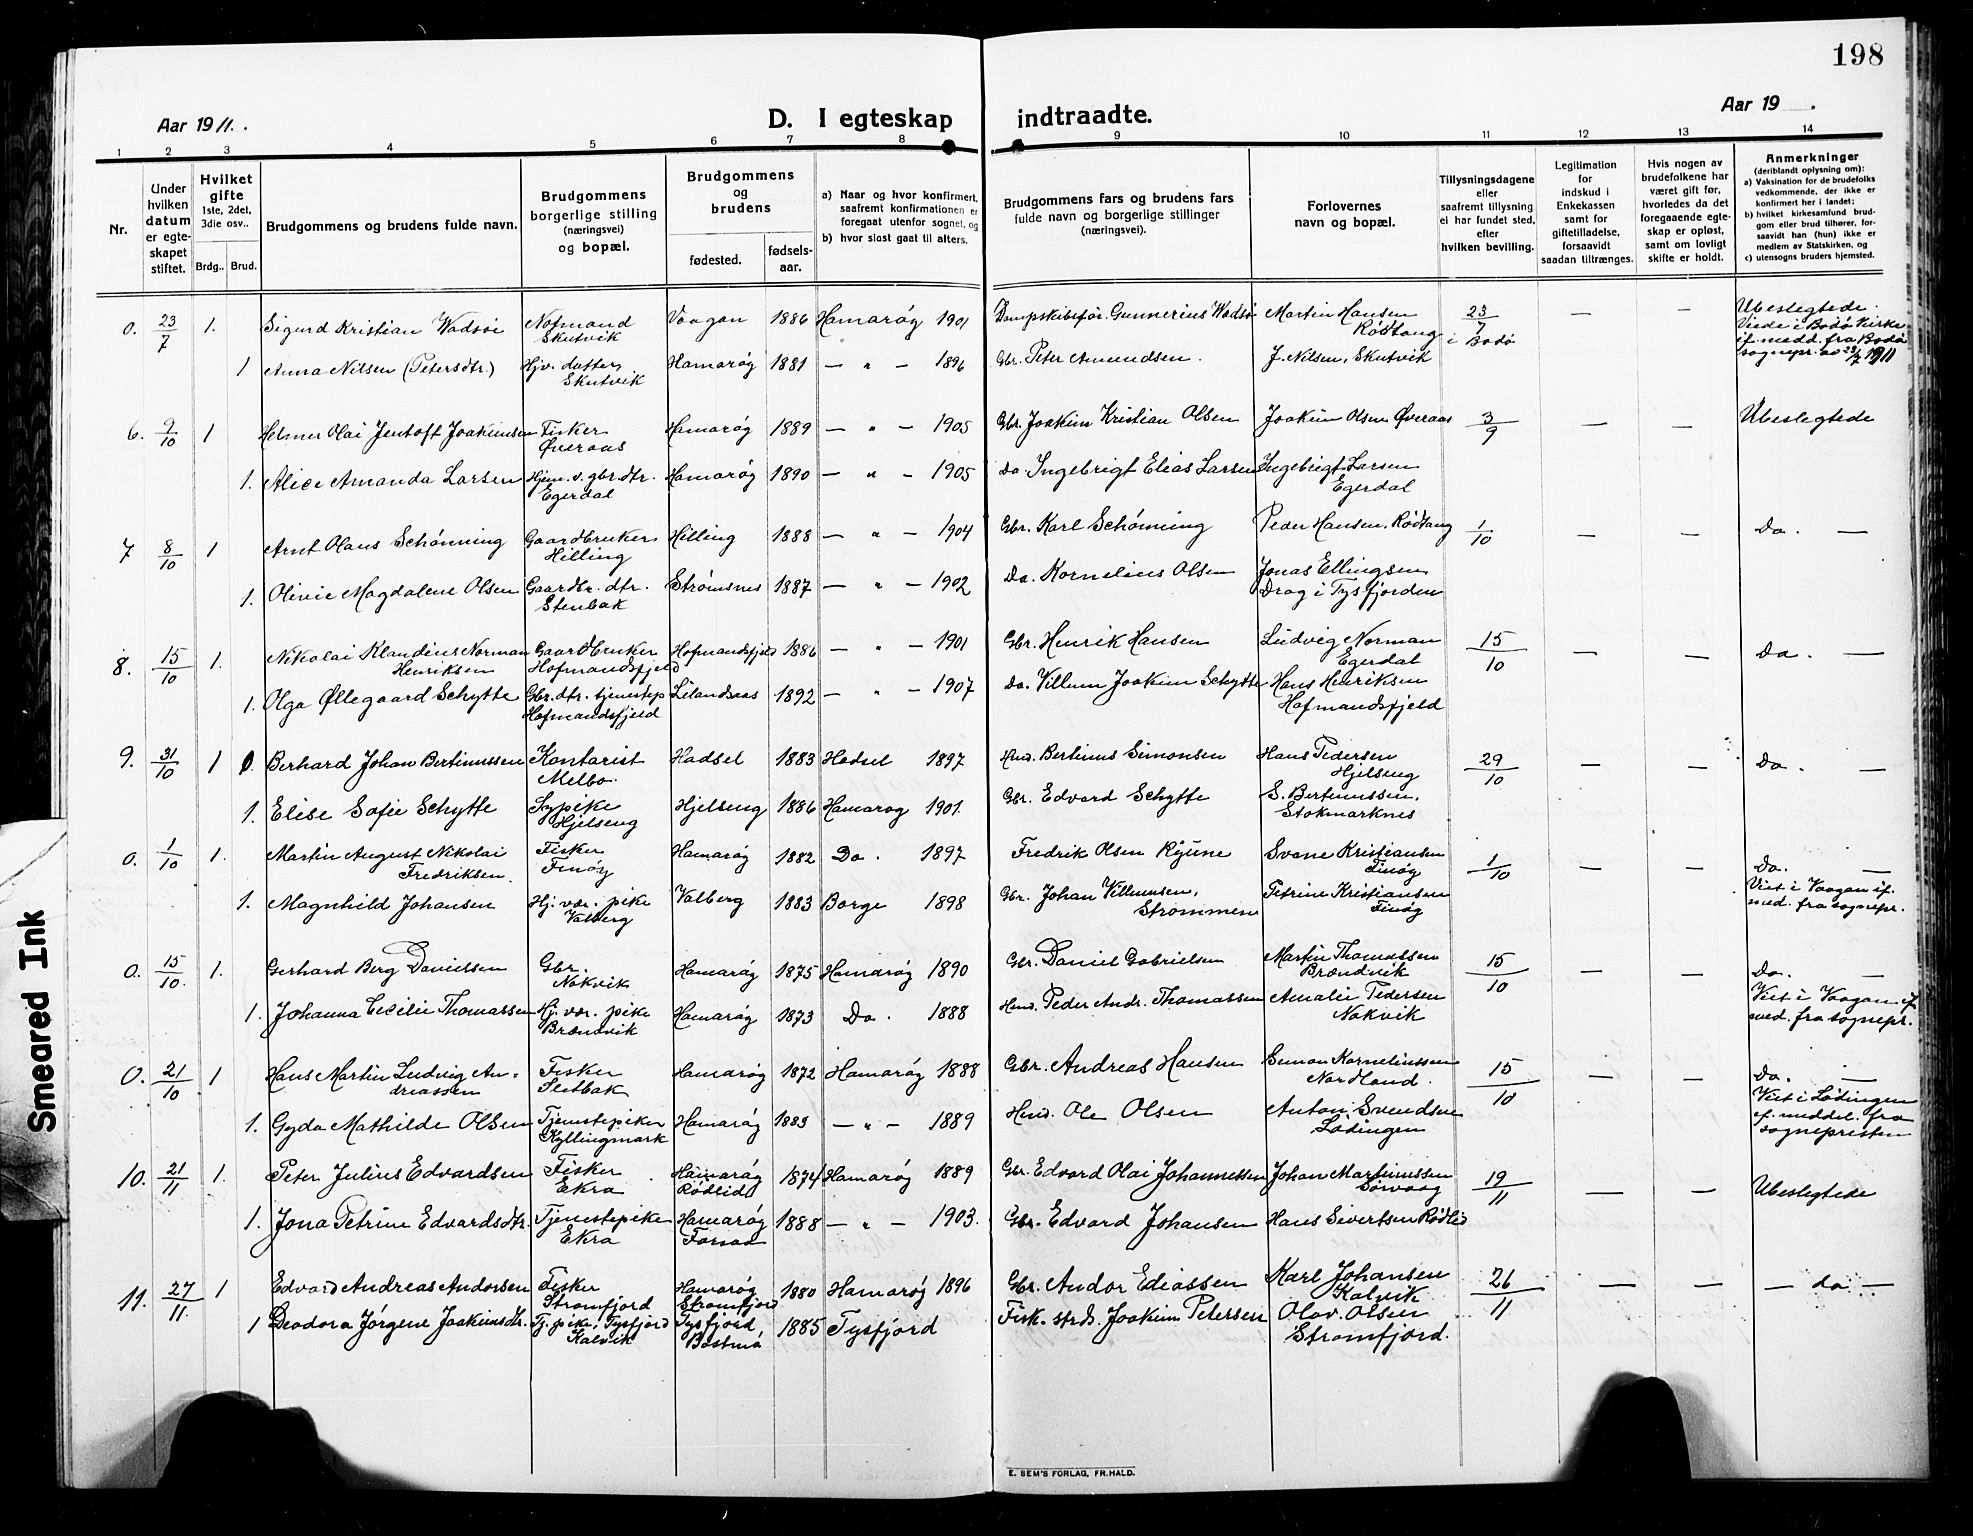 198
Aar 1911.
D. I egteskap indtraadte.
Aar 19 .
1 2 3 4 5 6 7 8 9 10 11 12 13 14
Nr.
Under hvilken datum er egteskapet stiftet.
Hvilket gifte 1ste, 2det, 3die osv..
Brdg.. Brud.
Brudgommens og brudens fulde navn.
Brudgommens borgerlige stilling (næringsvei) og bopæl.
Brudgommens og brudens
fødested.
fødselsaar.
a) Naar og hvor konfirmert, saafremt konfirmationen er foregaat utenfor sognet, og
b) hvor sidst gaat til alters.
Brudgommens fars og brudens fars fulde navn og borgerlige stillinger (næringsvei).
Forlovernes navn og bopæl.
Tillysningsdagene eller saafremt tillysning ei har fundet sted, efter hvilken bevilling.
Legitimation for indskud i Enkekassen samt for giftetilladelse, forsaavidt saadan tiltrænges.
Hvis nogen av brudefolkene har været gift før, hvorledes da det foregaaende egteskap er opløst, samt om lovligt skifte er holdt.
Anmerkninger (deriblandt oplysning om):
a) Vaksination for de brudefolks vedkommende, der ikke er konfirmert her i landet;
b) hvilket kirkesamfund brudgom eller brud tilhører, forsaavidt han (hun) ikke er medlem av Statskirken, og
c) utensogns bruders hjemsted.
0. 23/7 1. Sigurd Kristian Wadsøe Nofmand Skutvik Vaagan 1886 Hamarøy 1901 Dampskibsfør. Gunnerius Wadsø Martin Hansen Rødtang 23/7 i Bodø — — Ubeslegtede. Viede i Bodø Kirke if. medd. fra Bodø sognepr. av 29/7 1911
1 Anna Nilsen (Petersdtr.) Hjv. datter Skutvik Hamarøy 1881 — " — 1896 Gbr. Peter Amundsen. J. Nilsen, Skutvik
6. 9/10 1 Helmer Olai Jentoft Joakimsen Fisker Øveraas Hamarøy 1889 — " — 1905 Gbr. Joakim Kristian Olsen Joakim Olsen Øveraas 3/9 — — Ubeslegtede
1. Alice Amanda Larsen Hjem. v. gbr. dtr. Egerdal Hamarøy 1890 — " — 1905 Do. Ingebrigt Elias Larsen Ingebrigt Larsen Egerdal
7 8/10 1 Arnt Olaus Schønning Gaardbruker Hilling Hilling 1888 — " — 1904 Gbr. Karl Schønning Peder Hansen, Rødtang 1/10 — — Do. —
1. Olivie Magdalene Olsen Gaardbr. dtr. Stenbak Strømsnes 1887 — " — 1902 Do. Kornelius Olsen Jonas Ellingsen Drag i Tysfjorden
8. 15/10 1. Nikolai Klaudius Norman Henriksen Gaardbruker Hofmandsfjeld Hofmandsfjeld 1886 — " — 1901 Gbr. Henrik Hansen Ludvig Norman Egerdal 15/10 — — Do. —
1. Olga Øllegaard Schytte Gbr. dtr. tjenestep Hofmandsfjeld Lilandsaas 1892 — " — 1907 Do. Villum Joakim Schytte Hans Henriksen Hofmandsfjeld
9. 31/10 1 Berhard Johan Bertinussen Kontorist Melbo. Hadsel 1883 Hadsel 1897 Hmd. Bertinus Simonsen Hans Pedersen Hjelseng 29/10 — — Do. —
1. Elise Sofie Schytte Sypike Hjelseng Hjelseng 1886 Hamarøy 1901. Gbr. Edvard Schytte S. Bertinussen, Stokmarknes
0. 1/10 1. Martin August Nikolai Fredriksen. Fisker Finøy Hamarøy 1882 Do. 1897 Fredrik Olsen Svane Kristiansen Finøy 1/10 — — Do. — Viet i Vaagan if. med. fra sognepr.
1. Magnhild Johansen Hj. vær. pike Valberg Valberg 1883 Borge 1898 Gbr. Johan Villumsen, Strømmen Petrine Kristiansen Finøy
0. 15/10. 1. Gerhard Berg Danielsen Gbr. Nokvik Hamarøy 1875 Hamarøy 1890 Gbr. Daniel Gabrielsen Martin Thomassen Brændvik 15/10 — — Do. — Viet i Vaagan if. med. fra sognepr.
1. Johanna Cecilie Thomassen Hj. vær. pike Brændvik Hamarøy 1873 Do. 1888 Hmd. Peder Andr. Thomassen Amalie Pedersen Nokvik
0. 21/10 1 Hans Martin Ludvig Andreassen Fisker Stetbak Hamarøy 1872 Hamarøy 1888 Gbr. Andreas Hansen Simon Korneliussen Nordland. 15/10 — — Do. — Viet i Lødingen if. meddel. fra sognepresten
1. Gyda Mathilde Olsen Tjenestepike Kyllingmark Hamarøy 1883 — " — 1889 Hmd. Ole Olsen Anton Svendsen Lødingen
10. 21/11 1. Peter Julius Edvardsen Fisker Ekra Hamarøy Rødlid 1874 Hamarøy 1889 Gbr. Edvard Olai Johannessen Johan Martinussen Sørvaag 19/11 — — Ubeslegtede
1. Jona Petrine Edvardsdtr. Tjenestepike Ekra Hamarøy Forsaa 1888 — " — 1903. Gbr. Edvard Johansen Hans Sivertsen Rødlid
11. 27/11. 1 Edvard Andreas Andorsen Fisker Strømfjord Hamarøy Strømfjord 1880 Hamarøy 1896 Gbr. Andor Eliassen Karl Johansen Kalvik 26/11 — — — do —
1 Deodora Jørgene Joakimsdtr. Tj. pike, Tysfjord Kalvik Tysfjord Bostmo 1885 Tysfjord Fisk. strd. Joakim Petersen Olav. Olsen Strømfjord.
E. SEM'S FORLAG, FR.HALD.
Smeared Ink